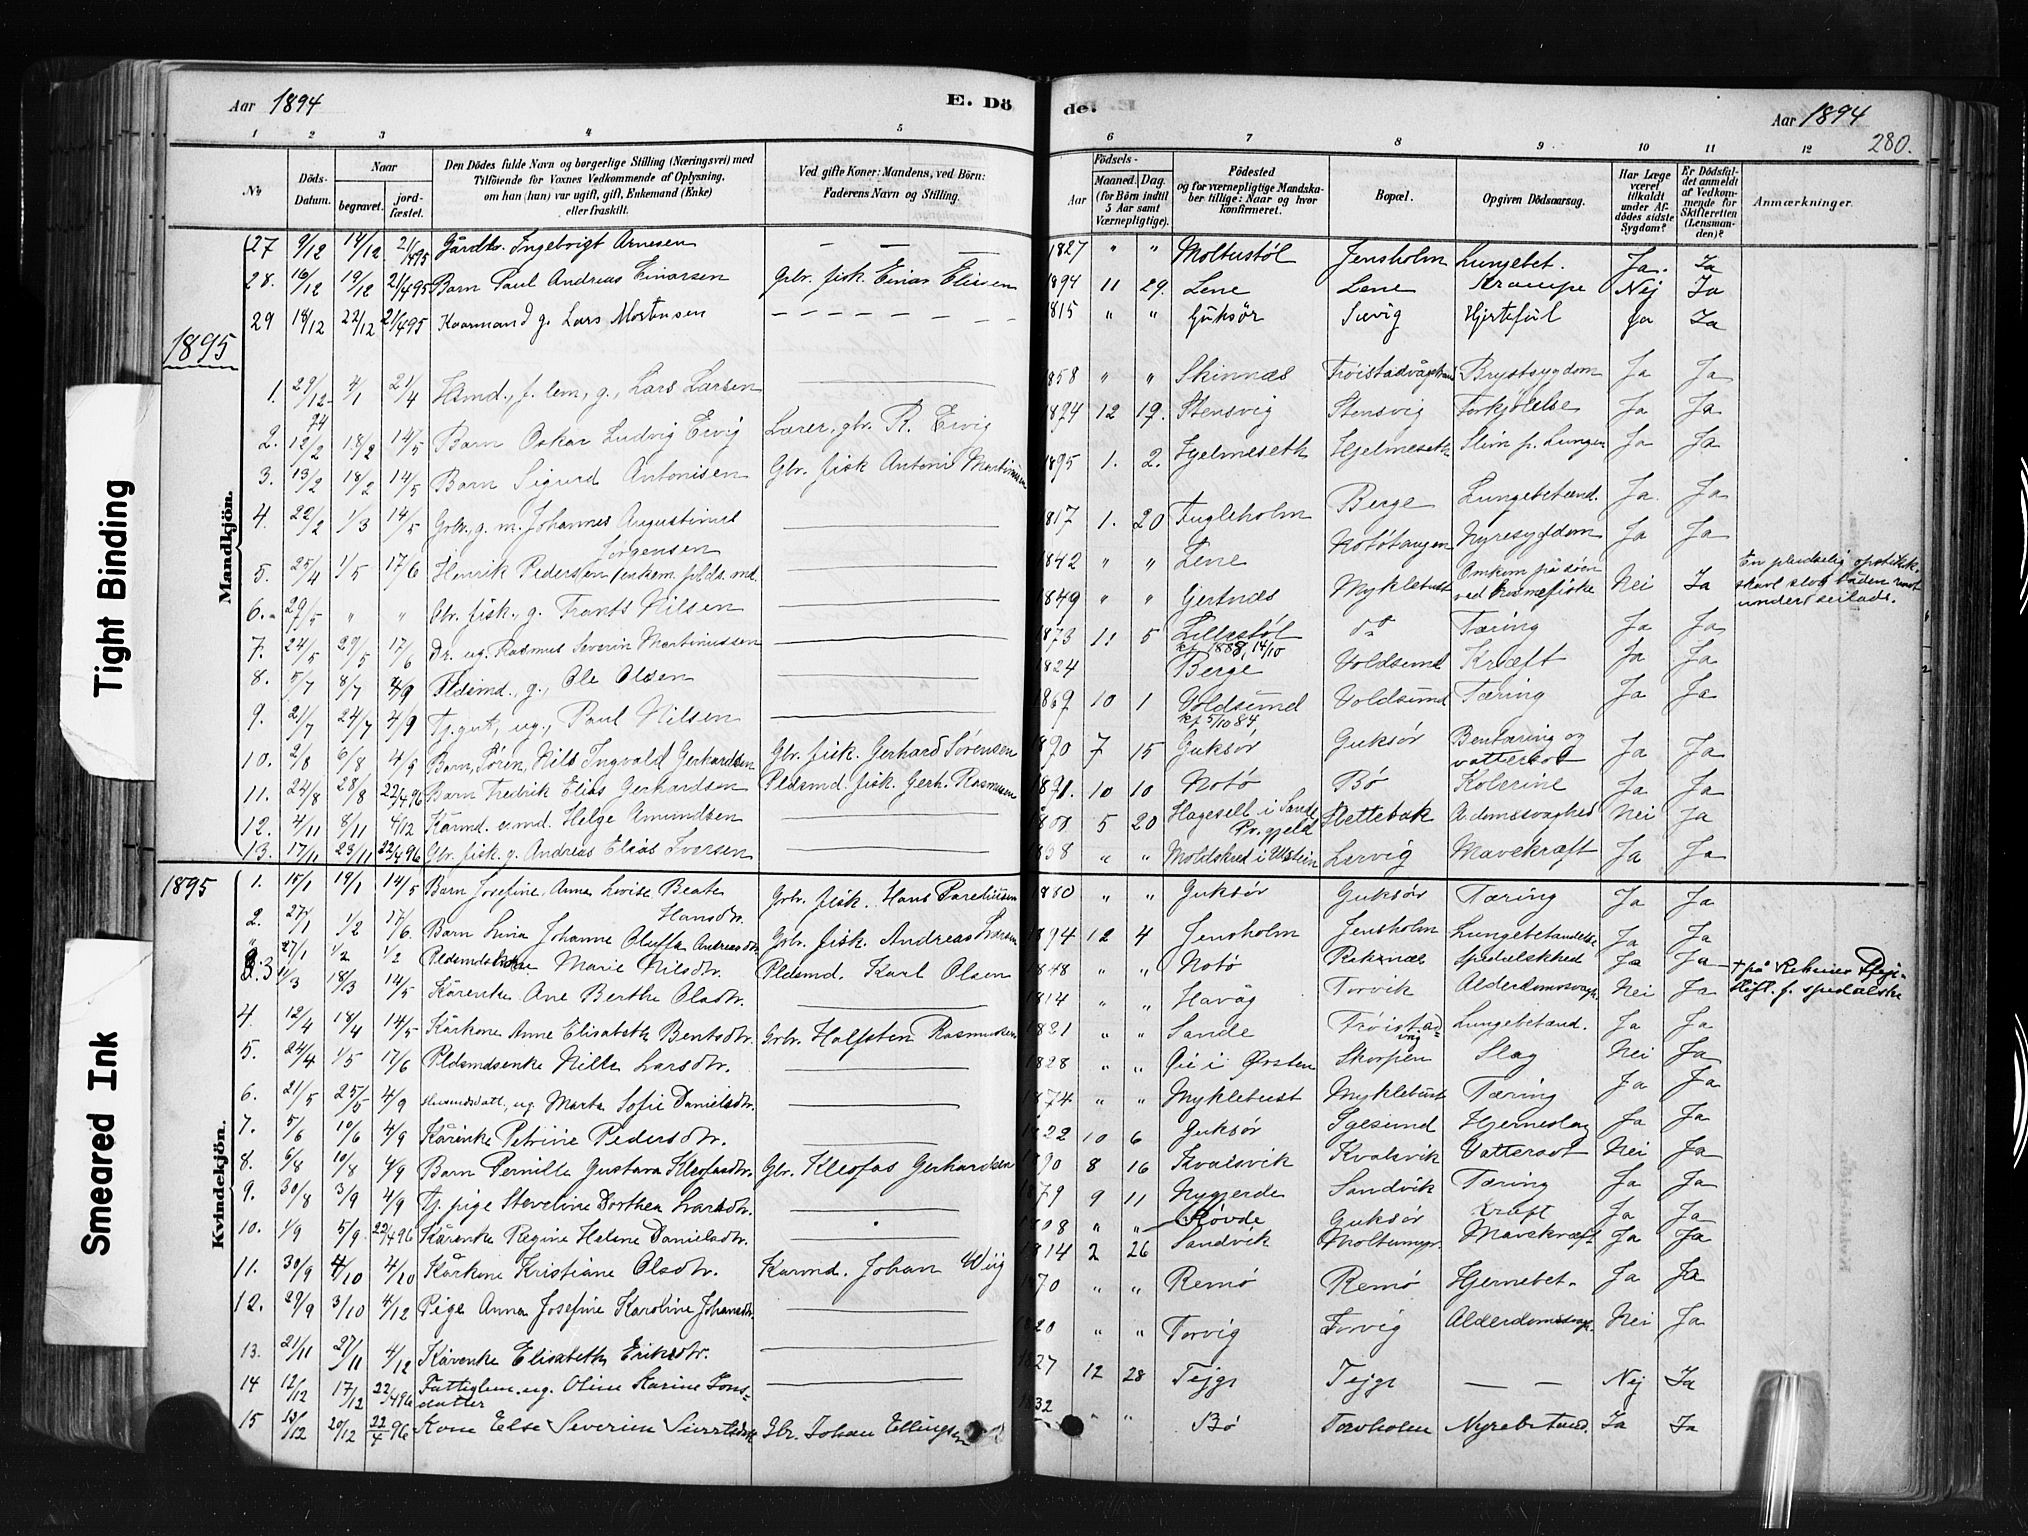 Aar 1894
E. Dö
de.
Aar 1894
280.
1 2 3 4 5 6 7 8 9 10 11 12
No.
Döds-Datum.
Naar
begravet.
jord-fæstet.
Den Dödes fulde Navn og borgerlige Stilling (Næringsvei) med
Tilföiende for Voxnes Vedkommende af Oplysning,
om han (hun) var ugift, gift, Enkemand (Enke)
eller fraskilt.
Ved gifte Koner: Mandens, ved Börn:
Faderens Navn og Stilling.
Födsels-
Aar
Maaned. Dag.
(for Börn indtil
5 Aar samt
Værnepligtige).
Födested
og for værnepligtige Mandska-
ber tillige: Naar og hvor
konfirmeret.
Bopæl.
Opgiven Dödsaarsag.
Har Læge
været
tilkaldt
under Af-
dödes sidste
Sygdom?
Er Dödsfal-
det anmeldt
af Vedkom-
mende for
Skifteretten
(Lensman-
den)?
Anmærkninger.
27 9/12 14/12 21/4 95 Gårdbr. Ingebrigt Arnesen — — — 1827 " " Moltustøl Jensholm Lungebet. Ja. Ja
28. 16/12 19/12 21/4 95 Barn Paul Andreas Einarsen Gbr. fisk. Einar Eliesen 1894 11 29. Lene Lene Krampe Nej Ja
29 18/12 22/12 21/4 95 Kaarmand g. Lars Mortensen 1815 " " Guksør Sævig Hjertefeil Ja Ja
1895
Mandkjön.
1. 29/12 94 4/1 21/4 Lars Larsen 1858 " " Skinnes Brystsygdom Ja Ja
2. 12/2 18/2 14/5 Barn Oskar Ludvig Ervig Lærer, gbr. R. Ervig 1894 12 19. Stensvig Stensvig Forkjølelse Ja Ja
3. 13/2 18/2 14/5 Barn Sigurd Antonisen Gbr. fisk Antoni Martinussen 1895 1. 2. Hjelmeseth Hjelmeseth Slim p. Lungen Ja Ja
4. 22/2 1/3 14/5 Gbr., g. m. Johannes Augustinus
Jørgensen 1817 1. 20 Fugleholm Berge Lungebetænd. Ja. Ja
5. 25/4 1/5 17/6 Henrik Pedersen enkem. plds.md. 1842 " " Lene Notøtangen Nyresygdom Ja Ja
6. 29/5 " " Gbr. fisk., g. Frants Nilsen 1849 " " Gertnes Myklebust Omkom på søen
ved Havnefiske Nei Ja En pludselig
under seilads.
7. 24/5 29/5 17/6 Dr. ug. Rasmus Severin Martinussen 1873 11 5 Lillestøl
kf. 1888, 14/10 do Tæring Ja Ja
8. 5/7 8/7 4/9 Pldsmd., g., Ole Olsen 1824 Berge Voldsund Kræft Ja Ja
9. 21/7 24/7 4/9 Tj.gut, ug., Paul Nilsen 1869 10 1 Voldsund
kf 5/10 84, Voldsund Tæring Ja Ja
10. 2/8 6/8 4/9 Barn, Søren, Nils Ingvald Gerhardsen Gbr. fisk. Gerhard Sørensen 1890 7 15 Guksør Guksør Bentæring og
vattersot Ja Ja
11. 24/8 28/8 22/4 96 Barn Fredrik Elias Gerhardsen Pldsmd. fisk. Gerh. Rasmussen 1891. 10 10 Notø Bø Kolerine Ja Ja
12. 4/11 8/11 4/12 Kårmd. e.md. Helge Amundsen 5 20 Hageselt i Sande
Pr.gjeld Slettebak Aldomssvaghed Nei Ja
13. 17/11 23/11 22/4 96 Gbr. fisk. g. Andreas Elias Iversen 1838 " " Moldskred i Ulstein Larvig Mavekræft Ja Ja
1895
Kvindekjön.
1. 15/1 19/1 14/5 Barn Josefine Anna Lovise Beate
Hansdtr. Gbr. fisk. Hans Parelius­sen 1880 " " Guksør Guksør Tæring Ja Ja
2. 27/1 1/2 17/6. Barn Livia Johanne Oluffa Andreasdtr. Gbr. fisk. Andreas Larsen 1894 12 4 Jensholm Jensholm Lungebetændelse Ja Ja
" 27/1 1/2 1/2 Marie Nilsdtr. Pldsmd. Karl Olsen 1848 " " Notø Reknæs Spedalskhed Ja Ja + på Reknes Pleje-
stift. f. spedalske
3 11/3 18/3 14/5 Kårenke Ane Berthe Olsdtr. 1814 " " Havåg Torvik Alderdomssvagh. Nei Ja
4. 12/4 18/4 14/5 Kårkone Anne Elisabeth Bentsdtr. Gbr. Halfsten Rasmussen 1821 " " Sande Frøistad-
våg Lungebetænd. Ja Ja
5. 24/4 1/5 17/6 Pldsmdsenke Nille Larsdtr. 1828 " " i Ørsten Skorpen Slag Nei Ja
6. 21/5 25/5 4/9 Husmdsdatt., ug. Marta Sofie Danielsdtr. 1874 " " Myklebust Myklebust Tæring Ja Ja
7. 5/6 10/6 4/9 Kårenke Petrine Pedersdtr. 1822 10 6 Guksør Igesund Hjerneslag Ja Ja
8. 6/8 10/8 4/9 Barn Pernille Gustava Kleofasdtr. Gbr. Kleofas Gerhardsen 1890 8 16 Kvalsvik Kvalsvik Vattersot Nei Ja
9. 30/8 3/9 4/9 Tj. pige Steveline Dorthea Larsdtr. 1879 9 11 Nygjerde Sandvik Tæring Ja Ja
10. 1/9 5/9 22/4 96 Kårenke Regine Helene Danielsdtr. 1808 " " Røvde Guksør Kræft Ja Ja
11. 30/9 4/10 4/10 Kårkone Kristiane Olsdtr. Karmd. Johan Wiig 1814 2 26 Sandvik Moltumyr. Mavekræft Ja Ja
12. 29/9 3/10 4/12 Pige Anna Josefine Karoline Johansdtr. 1870 " " Remø Remø Hjernebet. Ja Ja
13. 21/11 27/11 4/12 Kårenke Elisabeth Eriksdtr. 1820 " " Torvig Torvig Alderdomssvagh. Nei Ja
14 12/12 17/12 22/4 96 Fattiglem. ug. Oline Karine Jons-
datter 1827 12 28 Tejge Tejge — — Nej Ja
15 13/12 20/12 22/4 96 Kone Else Severine Sivertsdtr. Gbr. Johan Ellingsen 1832 " " Bø Torvholen Nyrebetænd. Ja Ja
Tight Binding
Smeared Ink